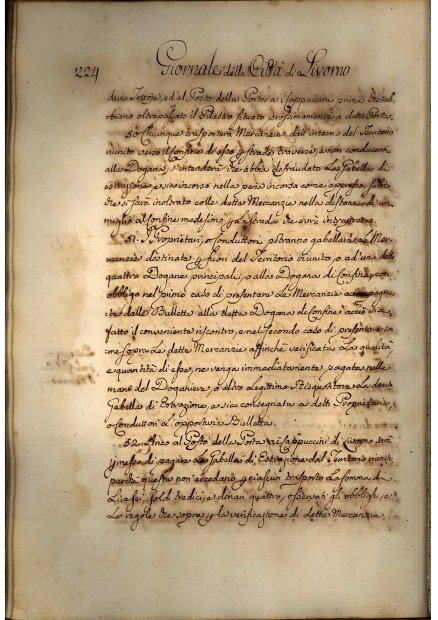 224 Giornale della Città di Livorno
due Tettoje, ed al Posto della Porta a i Cappuccini prima che ab-
biano oltrapassato il Pilastro situato prossimamente a detta Porta.
50. Chiunque trasporterà Mercanzie dall'interno del Territorio
riunito verso il Confine di esso p strade traverse, e non conducenti
alla Dogana, s'intenderà che abbia defraudato La Gabella di
estrazione, e sia incorso nella pena incorsa come appresso, subito
che si sarà inoltrato colle dette Mercanzie nella distanza di un
miglio al Confine medesimo p La Strada che avrà intrapresa.
51. I Proprietarj, o Conduttori potranno gabellare Le Mer-
canzie destinate p fuori del Territorio riunito o ad una delle
quattro Dogane principali, o alla Dogana di Confine, con
obbligo nel primo caso di presentare Le Mercanzie accompagna-
te dalle Bullette alla detta Dogana di Confine acciò sia
fatto il conveniente riscontro, e nel Secondo caso di presentare co-
me sopra Le dette Mercanzie affinchè verificata La qualità,
e quantità di esse, ne venga immediatamente pagata nelle
mani del Doganiere, o altro legittimo Riscuotitore La dovuta
Gabella di Estrazione, e sia consegnata a detti Proprietarj,
o Conduttori L'opportuna Bulletta.
52. Anco al Posto della Porta a i Cappuccini di Livorno sarà
pmesso di pagare La Gabella di Estrazione dal Territorio riunito,
purchè questa non ecceda p ciascun trasporto La Somma di
Lire sei, soldi tredici, e denari quattro, osservati gli obblighi, e
Le regole che sopra p La verificazione di dette Mercanzie.